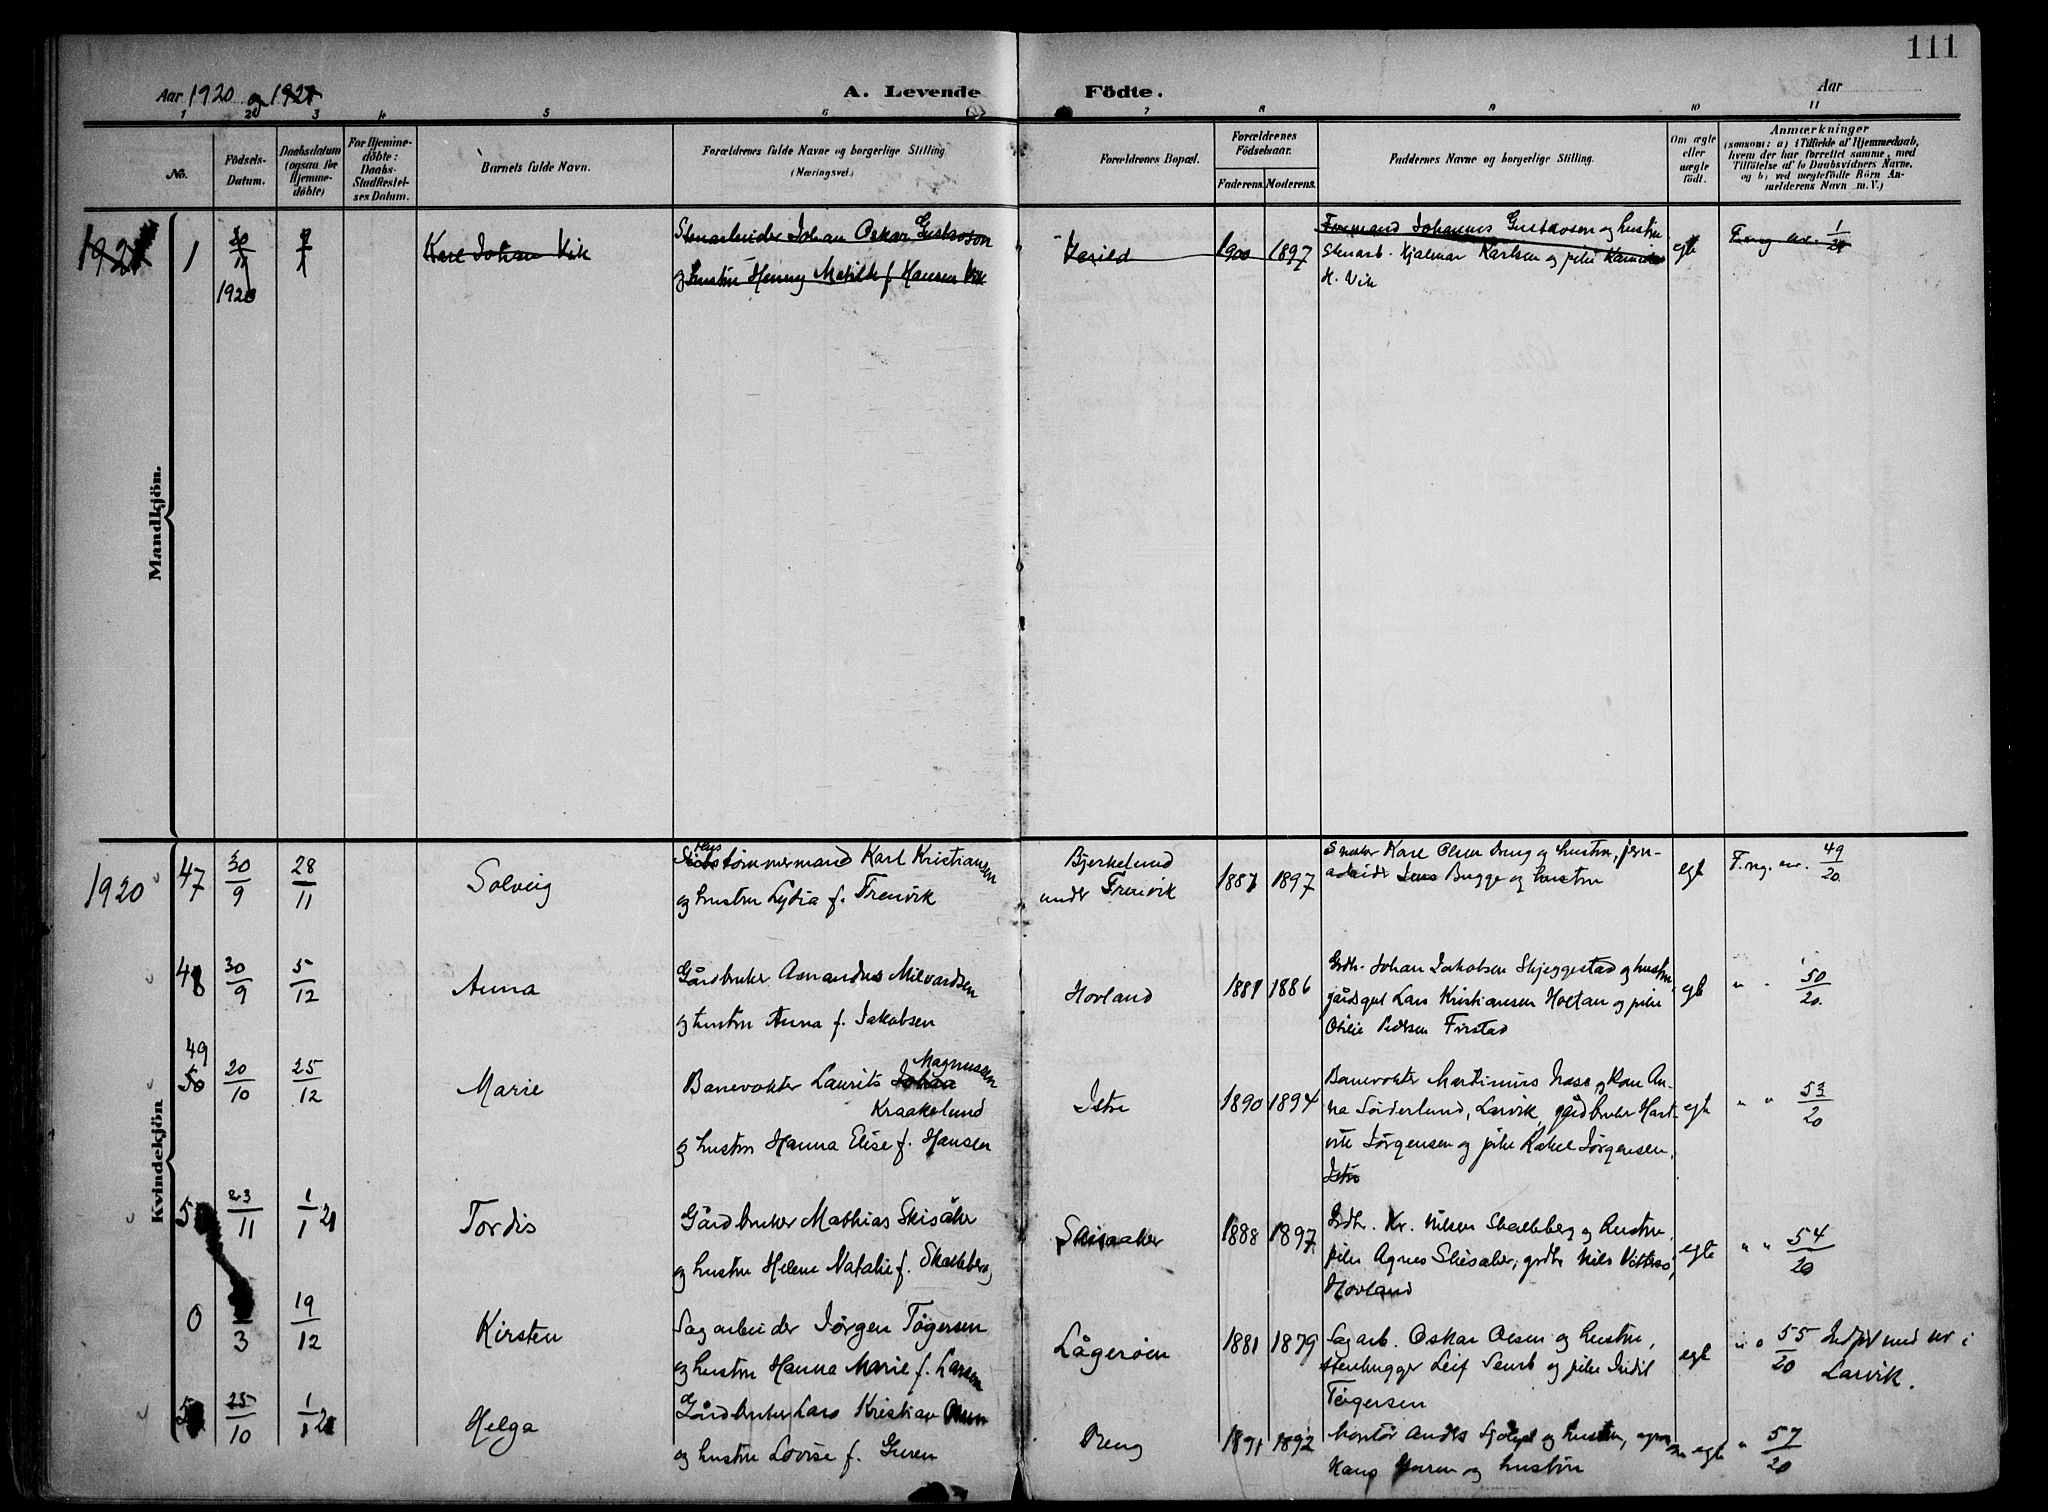 111
Aar 1920 og 1921
A. Levende Födte.
Aar
1 2 3 4 5 6 7 8 9 10 11
No.
Födsels-Datum.
Daabsdatum (ogsaa for Hjemmedöbte)
For Hjemmedöbte: Daabs-Stadfæstelses Datum.
Barnets fulde Navn.
Forældrenes fulde Navne og borgerlige Stilling. (Næringsvei.)
Forældrenes Bopæl.
Forældrenes Födselsaar.
Faderens. Moderens.
Faddernes Navne og borgerlige Stilling.
Om ægte eller uægte födt.
Anmærkninger
(saasom: a) i Tilfælde af Hjemmedaab, hvem der har forrettet samme, med Tilföielse af to Daabsvidners Navne, og b) ved uegtefödte Börn Anmelderens Navn m. V.)
Mandkjön.
1921 1 1920
Karl Johan Vik
Stenarbeider Johan Oskar Gustavson
og hustru Henny Matilde f. Hansen Vik
1900 1897
Formand Johannes Gustavsen og hustru
Stenarb. Hjalmar Karlsen og pike
H. Vik
egte
F. reg. nr. 1/21
Kvindekjön
1920 47 30/9 28/11
Solveig
tømmermand Karl Kristiansen
og hustru Lydia f. Treuvik
Bjerkelund
under Treuvik
1887 1897
Snekker Karl Olsen Dreng og hustru, jern-
arbeider Jens Bugge og hustru
egte
F. reg. nr. 49/20.
48 30/9 5/12
Anna
Gårdbruker Amandus Milvardsen
og hustru Anna f. Jakobsen
Hovland
1881 1886
Grdbr. Johan Jakobsen Skjeggestad og hustru,
gårdsgut Lars Kristiansen Holtan og pike
Pedersen
egte
" " 50/20.
49
50 20/10 25/12
Marie
Banevokter Laurits Magnussen
Kraakelund
og hustru Hanna Elise f. Hansen
Istre
1890 1894
Banevokter Martinius Næss og Kone An-
na Sönderlund, Larvik, gårdbruker Hart-
vik Jørgensen og pike Rakel Jørgensen,
Istre
egte
" " 53/20
5 23/11 1/1 21
Tordis
Gårdbruker Mathias Skisåker
og hustru Helene Natalie f. Skalleberg
Skisaaker
1888 1897
Grdbr. Kr. Nilsen Skalleberg og hustru,
pike Agnes Skisaker, grdbr. Nils
Hovland
egte
" " 54/20
0 3 19/12
Kirsten
Sagarbeider Jørgen Tøgersen
og hustru Hanna Marie f. Larsen
Lågerøen
1881 1879
Sagarb. Oskar Olsen og hustru,
stenhugger Leif og pike
Tøgersen
egte
" " 55/20 Indført med nr i
Larvik.
5 25/10 1/1 21
Helga
Gårdbruker Lars Kristian
og hustru Lovise f. Guren
Dreng
1891 1892
Montör og hustru,
Hans og hustru
egte
" 57/20